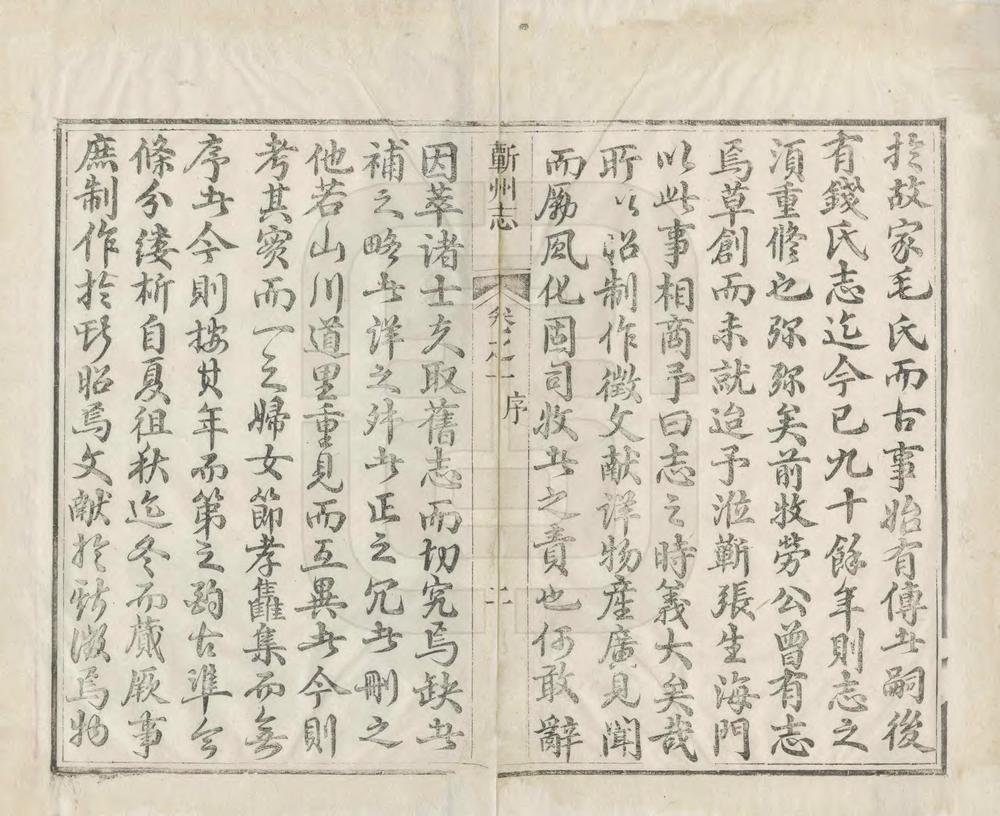 於故家毛氏而古事始有傳者嗣後
有錢氏志迄今已九十餘年則志之
須重修也弥弥矣前牧勞公曾有志
焉草創而未就迨予涖蘄張生海門
以此事相商予曰志之時義大矣哉
所以昭制作徵文献详物産廣見聞
而勵風化固司牧者之責也何敢辭
蘄州志
卷之一 序
二
因萃诸士夫取舊志而切究焉缺者
補之略者详之舛者正之冗者刪之
他若山川道里重見而互異者今則
考其实而一之婦女節孝雜集而無
序者今則按其年而第之酌古準今
條分缕析自夏徂秋迄冬而蕆厥事
庶制作於斯昭焉文献於斯徵焉物